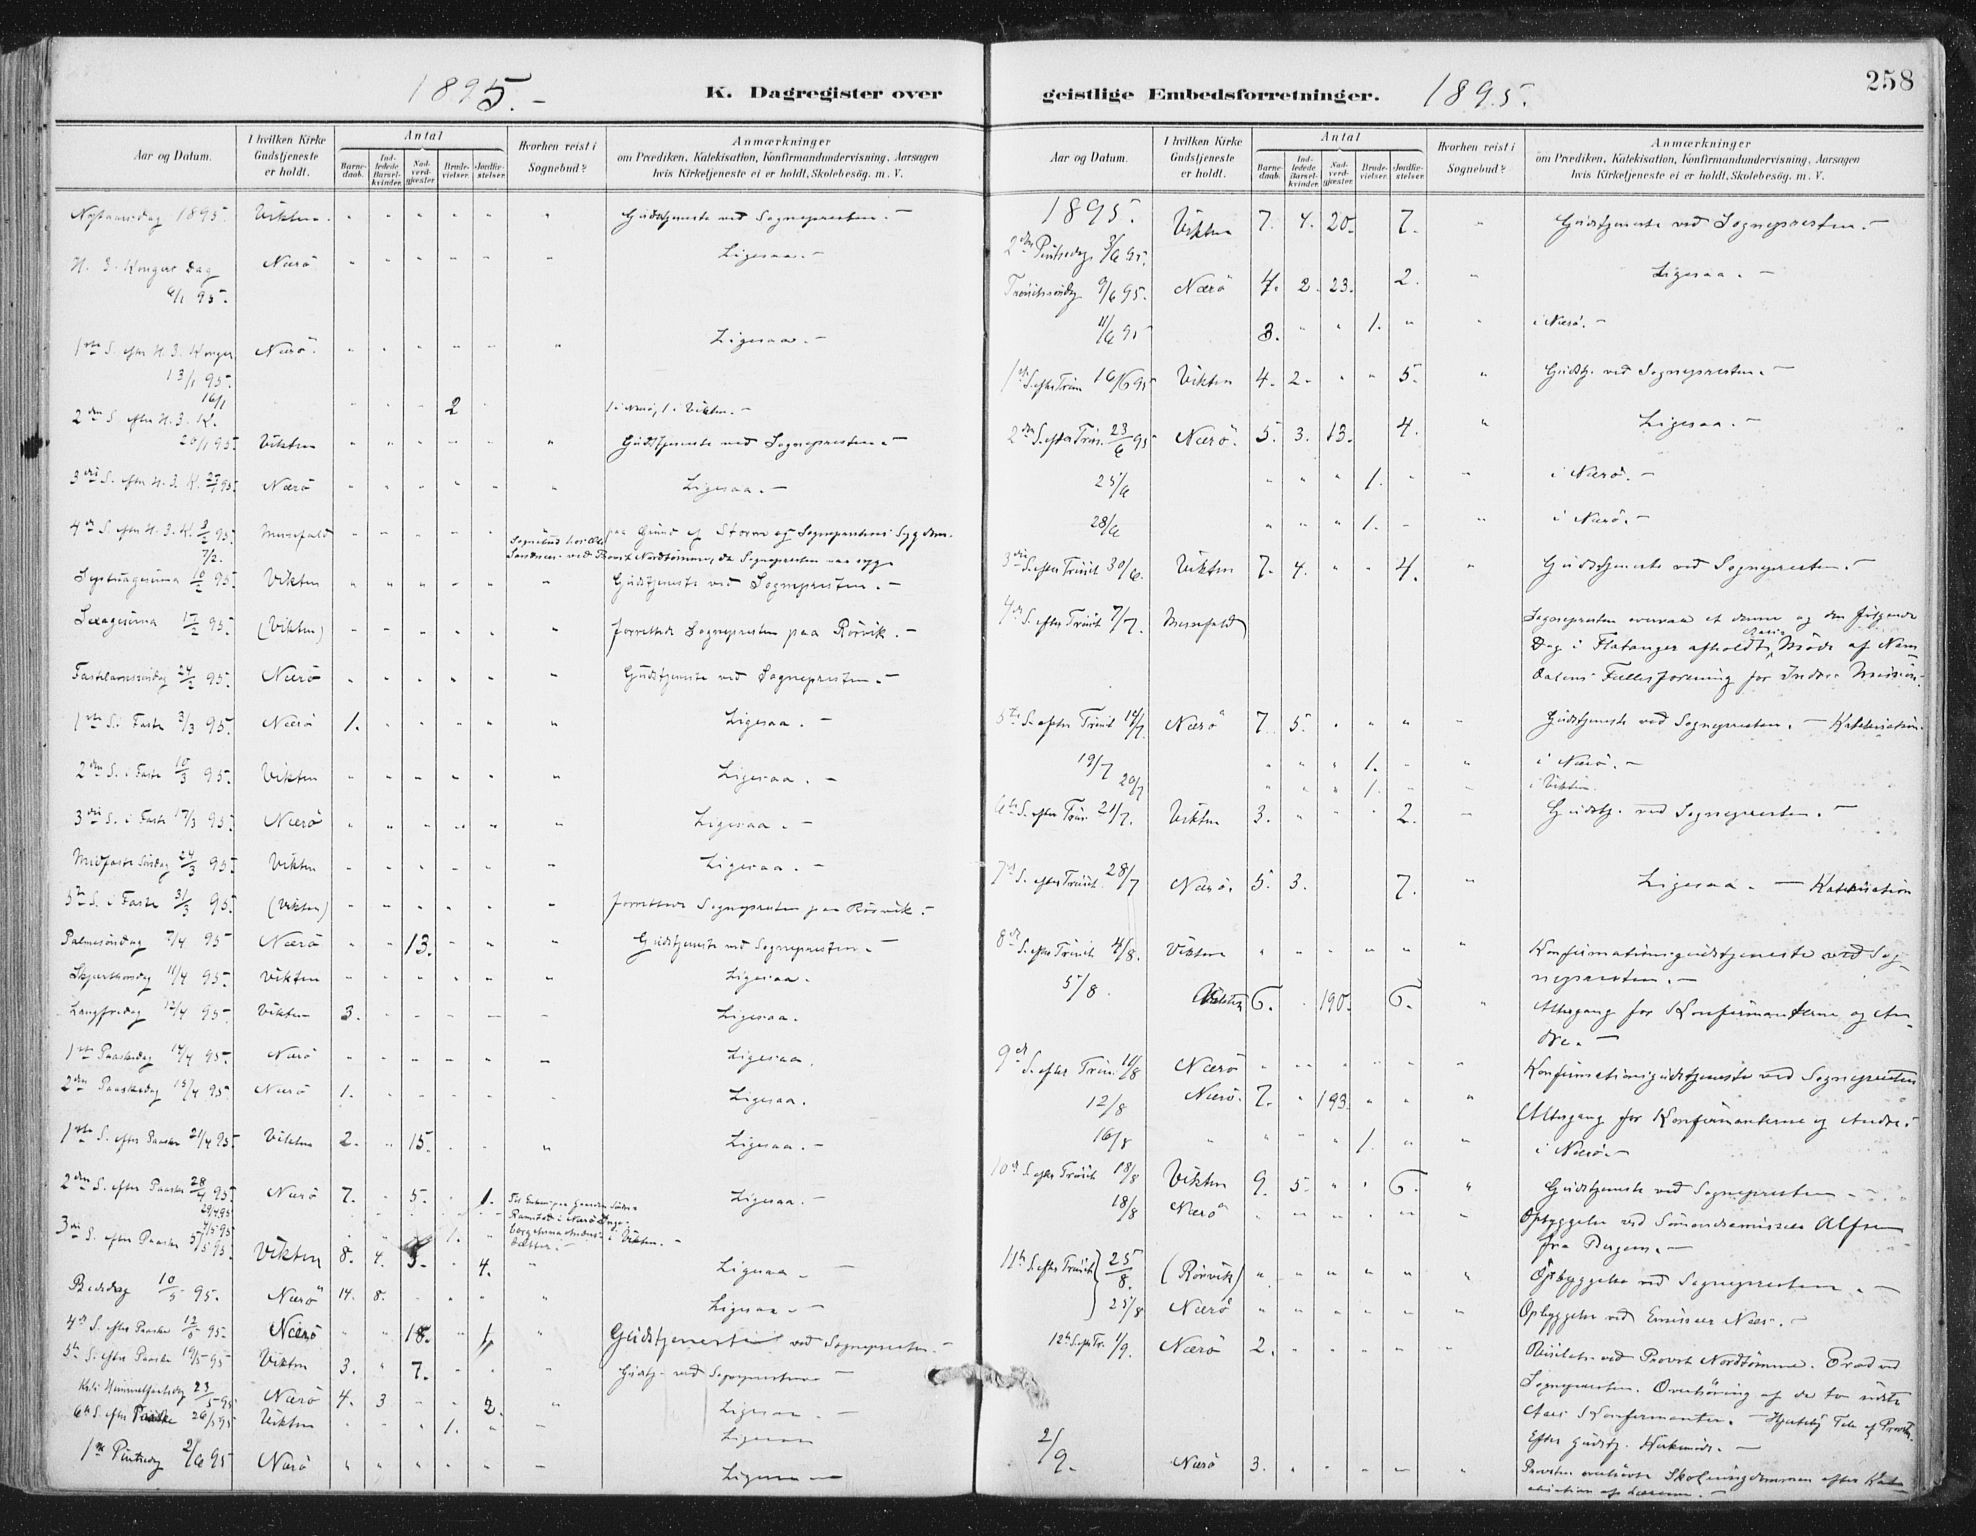 1895.-
K. Dagregister over
Aar og Datum.
I hvilken Kirke Gudstjeneste er holdt.
Antal
Barnedaab.
Indledede Barselkvinder.
Nadverdgjester.
Brudevielser.
Jordfæstelser.
Hvorhen reist i Sognebud?
Anmærkninger
om Prædiken, Katekisation, Konfirmandundervisning, Aarsagen
hvis Kirketjeneste ei er holdt, Skolebesøg. m. V.
Nytaarsdag 1895. Vikten. " " " " " " Gudstjeneste ved Sognepresten.-
H. 3. Kongers Dag Nærö " " " " " " Ligesaa.-
6/1 95.
1ste S. efter H. 3. Konger Nærö. " " " " " " Ligesaa.-
13/1 95.
16/1 " " " 2 " 1 i Nærö, 1 i Vikten.-
2den S. efter H. 3. K.
20/1 95. Vikten " " " " " " Gudstjeneste ved Sognepresten.-
3die S. efter H. 3. K. 27/1 95. Nærö " " " " " " Ligesaa.-
4de S. efter H. 3. K. 3/2 95. " " " " " paa Grund af Storm og Sogneprestens Sygdom.
7/2. Sognebud ved Provst Nordtömme, da Sognepresten var syg.
Septuagesima 10/2 95. Vikten " " " " " " Gudstjeneste ved Sognepresten.-
Sexagesima 17/2 95. (Vikten) " " " " " " forrettede Sognepresten paa Rörvik.-
Fastelavnssöndag 24/2 95. Nærö " " " " " " Gudstjeneste ved Sognepresten.-
1ste S. i Faste 3/3 95. Nærö 1. " " " " " Ligesaa.-
2den S. i Faste 10/3 95. Vikten " " " " " " Ligesaa.-
3die S. i Faste 17/3 95. Nærö " " " " " " Ligesaa.-
Midfaste Söndag 24/3 95. Vikten " " " " " " Ligesaa.-
5te S. i Faste 31/3 95. (Vikten) " " " " " " forrettede Sognepresten paa Rörvik.-
Palmesöndag 7/4 95 Nærö " " 13. " " " Gudstjeneste ved Sognepresten.-
Skjærthorsdag 11/4 95. Vikten " " " " " " Ligesaa.
Langfredag 12/4 95. Vikten 3. " " " " " Ligesaa.
1ste Paaskedag 14/4 95. Nærö " " " " " " Ligesaa.
2den Paaskedag 15/4 95. Nærö 1. " " " " " Ligesaa.
1ste S. efter Paaske 21/4 95. Vikten 2. " 15. " " " Ligesaa.-
2den S. efter Paaske 28/4 95. Nærö 7. " 5. " 1. Ligesaa.-
29/4 95
Ramstad i Nærö
7/5 95 1. " i Vikten.-
3die S. efter Paaske 5/5 95. Vikten 8. 4. 5. " 4. " Ligesaa.-
Bededag 10/5 95. Nærö 14. 8. " " " " Ligesaa.-
4de S. efter Paaske 12/5 95. Nærö " " 18. " 1. " Gudstjeneste ved Sognepresten.-
5te S. efter Paaske 19/5 95 Vikten 3. " 7. " " " Gudstj. ved Sognepresten
Kristi Himmelfartsdag 23/5 95 Nærö 4. 3 " " 2. " Ligesaa.
6te S. efter Paaske 26/5 95 Vikten " " " 1. " " Ligesaa
1ste Pintsedag 2/6 95 Nærö " " " " " " Ligesaa-
geistlige Embedsforretninger.
1895.
258
Aar og Datum.
I hvilken Kirke Gudstjeneste er holdt.
Antal
Barnedaab.
Indledede Barselkvinder.
Nadverdgjester.
Brudevielser.
Jordfæstelser.
Hvorhen reist i Sognebud?
Anmærkninger
om Prædiken, Katekisation, Konfirmandundervisning, Aarsagen
hvis Kirketjeneste ei er holdt, Skolebesøg. m. V.
1895. Vikten 7. 4. 20. 7. " Gudstjeneste ved Sognepresten.-
2den Pintsedag 3/6 95.
Trinitssöndag 9/6 95. Nærö 4. 2. 23. 2. " Ligesaa.-
11/6 95 3. " " 1. " " i Nærö.-
1ste S. efter Trin 16/6 95 Vikten 4. 2. " " 5. " Gudstj. ved Sognepresten.-
2den S. efter Trin. 23/6 95 Nærö. 5. 3. 13. 4. " Ligesaa.-
25/6 " " " 1. " " i Nærö.-
28/6 " " " 1. " " i Nærö.-
3die S. efter Trinit 30/6. Vikten 7. 4. " " 4. " Gudstjeneste ved Sognepresten.-
4de S. efter Trinit 7/7. Sognepresten overvar et denne og den fölgende
Dag i Flatanger afholdt Möde af Nam-
dalens Fællesforening for Indre Mission.
5te S. efter Trinit 14/7. Nærö 7. 5. " " " " Gudstjeneste ved Sognepresten.- Katekisation.
19/7 " " " 1. " " i Nærö.-
20/7 " " " 1. " " i Vikten.
6te S. efter Trin. 21/7. Vikten 3. " " " 2. " Gudstj. ved Sognepresten.-
7de S. efter Trinit. 28/7 Nærö. 5. 3. 7. " Ligesaa.- Katekisation
8de S. efter Trinit 4/8. Vikten " " " " " " Konfirmationsgudstjeneste ved Sog-
nepresten.-
5/8. Vikten 6. " 190. " 6. " Altergang for Konfirmanterne og An-
dre.-
9de S. efter Trin. 11/8 Nærö " " " " " " Konfirmationsgudstjeneste ved Sognepresten
12/8 Nærö. 7. " 193. " " " Altergang for Konfirmanterne og Andre.
16/8 " " " " 1. " " i Nærö.-
10de S. efter Trinit 18/8 Vikten 9. 5. " " 6. " Gudstjeneste ved Sognepresten
18/8 Nærö " " " " " " Opbyggelse ved Sömandsmissær Alfsen
fra Bergen.-
11te S. efter Trinit 25/8. (Rörvik) " " " " " " Opbyggelse ved Sognepresten.-
25/8 Nærö " " " " " " Opbyggelse ved Emissær Næss.-
12te S. efter Tr. 1/9. Nærö 2. " " " " " Visitats ved Provst Nordtömme. Præd. ved
Sognepresten. Overhöring af de to sidste
Aars Konfirmanter.- Tale af Provsten.
Efter Gudstj. Kirkemöde.-
2/9. Nærö 3. " " " " " Provsten overhörte Skoleungdommen efter Kate-
kisation af Lærerne.-